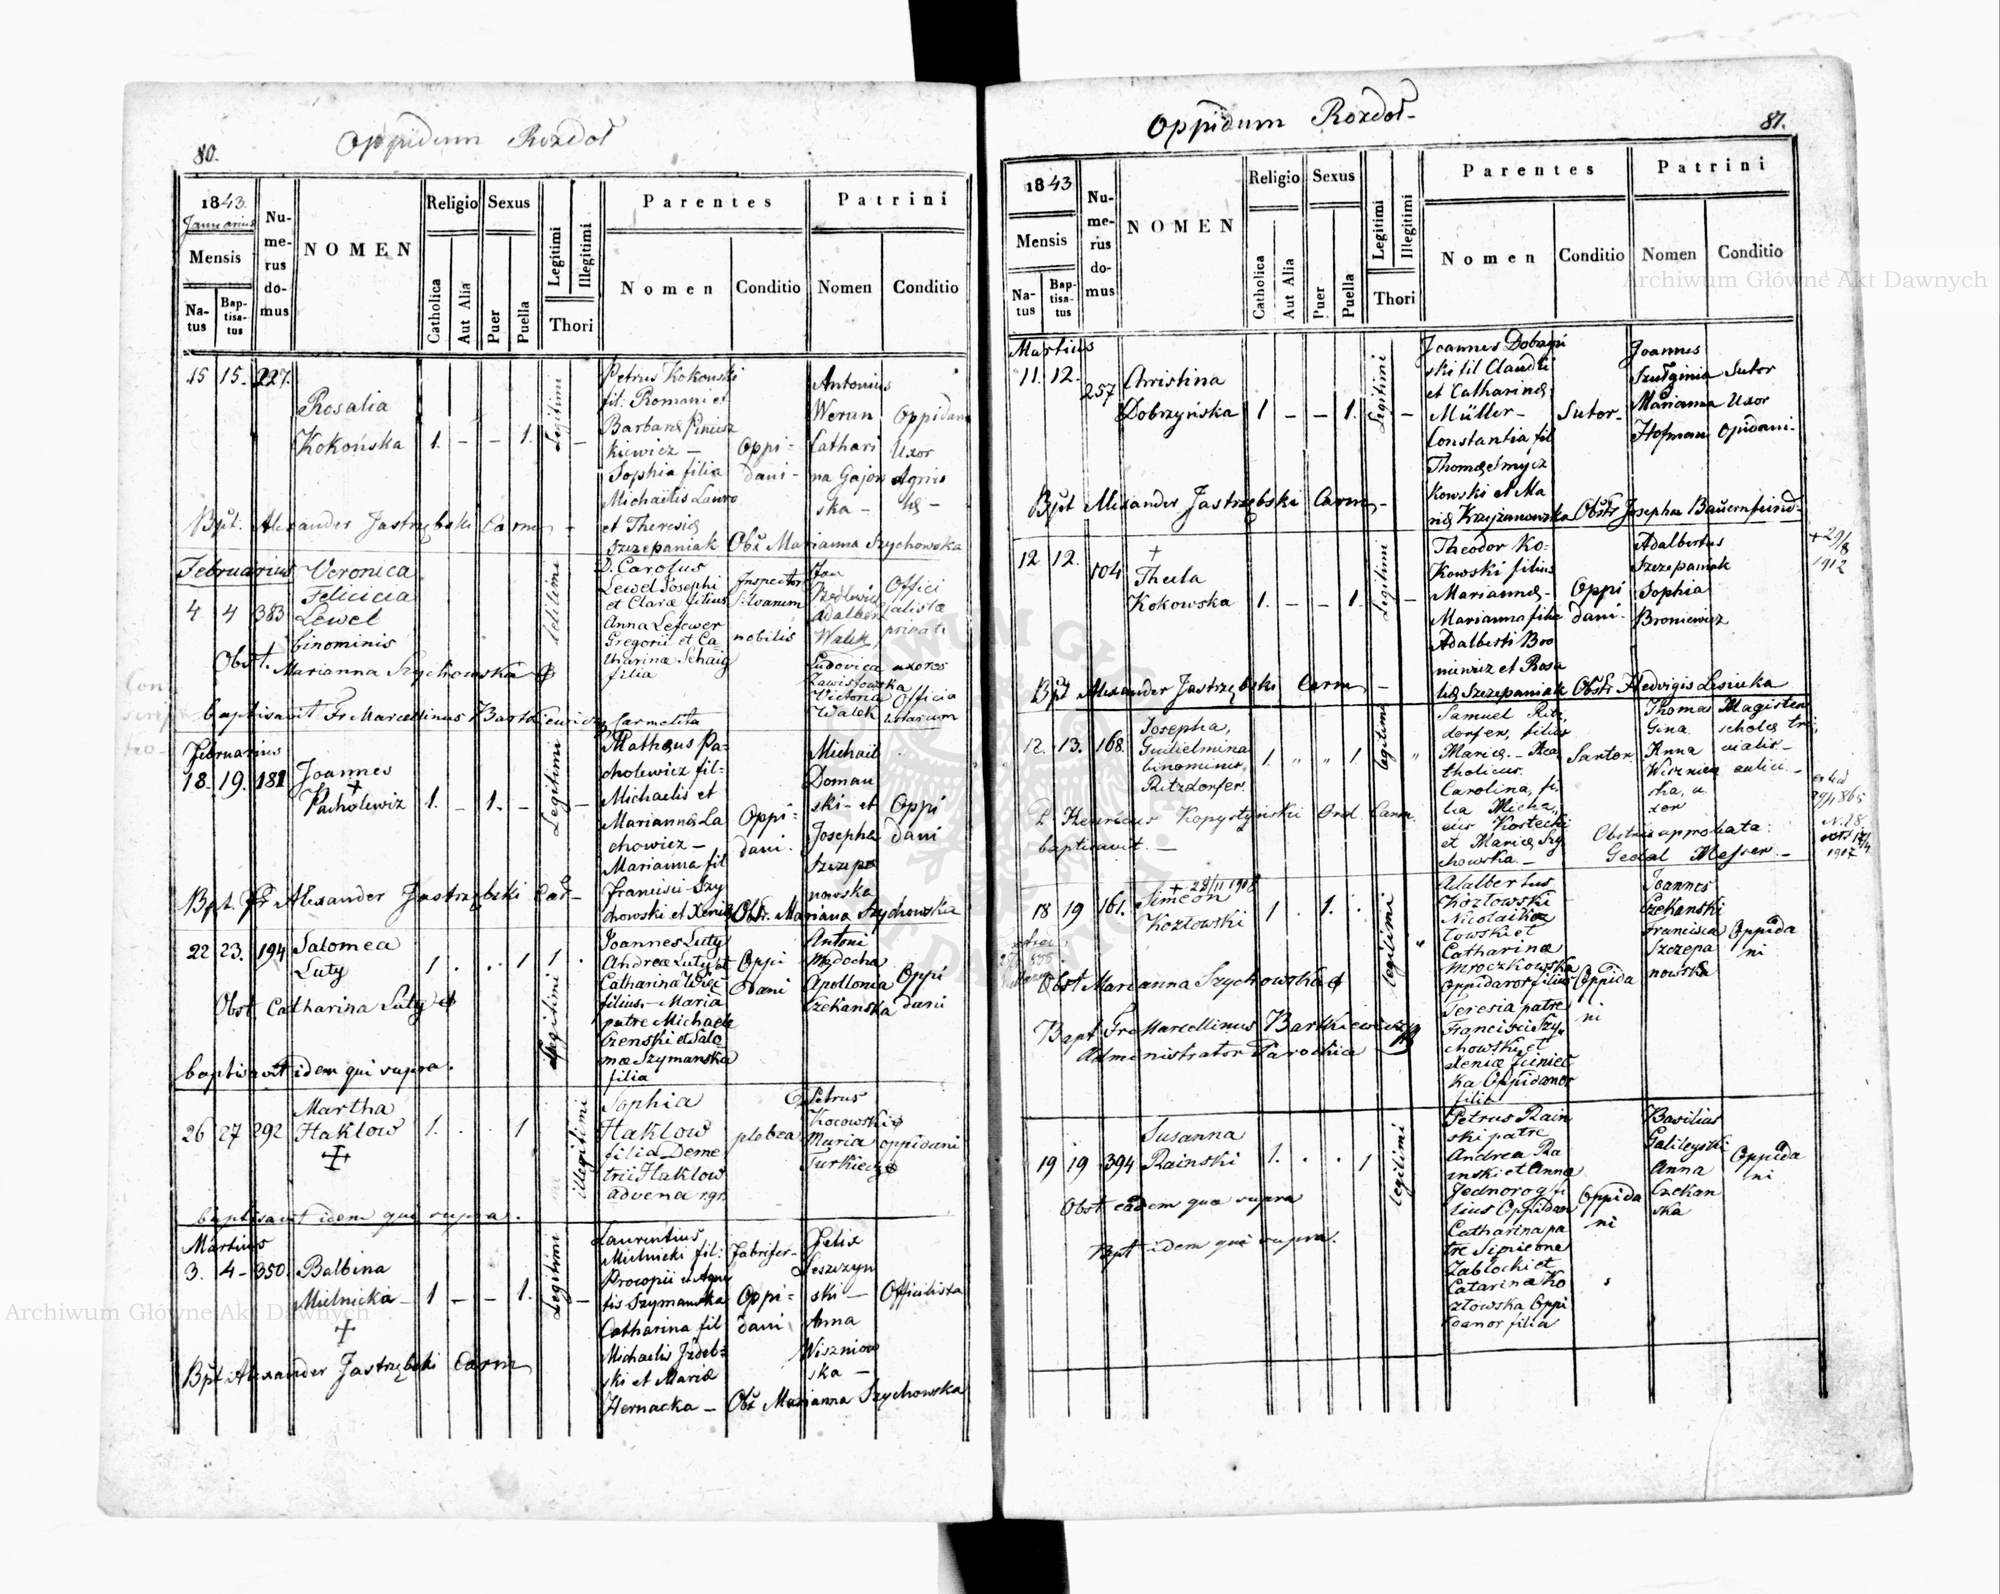 80.
Oppidum Rozdoł
1843.
Januarius
Mensis
Natus
Baptisatus
Numerus domus
NOMEN
Religio
Catholica
Aut Alia
Sexus
Puer
Puella
Legitimi
Illegitimi
Thori
Parentes
Nomen
Conditio
Patrini
Nomen
Conditio
15 15. 227.
Rosalia
Kokońska
1. - - 1.
Legitimi
-
Petrus Kokonski
fil: Romani et
Barbaræ Piniusz
kiewicz -
Sophia filia
Michaelis Lawro
et Theresiæ
Szczepaniak
Oppi-
dani-
Antonius
Werun
Cathari
na Gajow
ska -
Oppidanus
Uxor
Bpt. Alexander Jastrzębski Carm -
Obs Marianna Szychowska
Februarius
4 4 383
Veronica
Felicia
Lewel
binominis
Legitimi
D. Carolus
Lewel Josephi
et Claræ filius
Anna Lefewer
Gregorii et Ca-
tharinæ Schaig
filia
Inspector
Silvarum
nobilis
Jan
Adalbert
Walek
Ludovica
Zawistowska
Victoria
Walek
Offici
jalistæ
privati
uxores
Officia
listarum
Obst. Marianna Szychowska
baptisavit Fr Marcellinus Bartkiewicz Carmelita
Februarius
18. 19. 181
Joannes
Pacholewiz
1. - 1. -
Legitimi
-
Mathæus Pa-
cholewicz fil-
Michaelis et
Mariannæ La
chowicz -
Marianna fil
Francisci Szy
chowski et Xeniæ
Oppi-
dani.
Michael
Doman
ski - et
Josepha
Szczepa
nowska
Oppi
dani
Bpt. Fr Alexander Jastrzębski Car-
Obst. Mariana Szychowska
22 23. 194
Salomea
Luty
1 . . 1 1 .
Legitimi
Joannes Luty
Andreæ Luty et
Catharina Więc
filius - Maria
patre Michaele
Czenski et Salo
meæ Szymanska
filia
Oppi
dani
Antoni
Mędocha
Apollonia
Czekanska
Oppi
dani
Obst Catharina Luty
baptisavit idem qui supra.
26 27 292
Martha
Haklow
1. . 1
illegitimi
Sophia
Haklow
filia Deme
trii Haklow
advena
plebea
Petrus
Kocowski
Maria
oppidani
baptisavit idem qui supra.
Martius
3. 4- 350
Balbina
Mielnicka -
1 - - 1.
Legitimi
-
Laurentius
Mielnicki fil:
Procopii et Agne
tis Szymanska
Catharina fil
Michaelis Jzdeb-
ski et Mariæ
Hernacka -
Fabrifer-
Oppi-
dani
Felix
Leszczyn
ski -
Anna
Wiszniow
ska -
Officilista
Bpt Alexander Jastrzębski Carm
Obs Marianna Szychowska
81.
Oppidum Rozdoł-
1843
Mensis
Natus
Baptisatus
Numerus domus
NOMEN
Religio
Catholica
Aut Alia
Sexus
Puer
Puella
Legitimi
Illegitimi
Thori
Parentes
Nomen
Conditio
Patrini
Nomen
Conditio
Martius
11. 12. 257
Christina
Dobrzyńska
1 - - 1.
Legitimi
-
Joannes Dobrzyń
ski fil Claudii
et Catharinæ
Müller-
Constantia fil
Thomæ Smycz
kowski et Ma
riæ Krzyżanowska
Sutor-
Joannes
Szułginia
Marianna
Hofman
Sutor
Uxor
Opidani-
Bpt Alexander Jastrzębski Carm-
Obstr Josepha Bauernfeind-
12 12. 104
Thecla
Kokowska
1. - - 1.
Legitimi
-
Theodor Ko-
kowski filius
Mariannæ-
Marianna filia
Adalberti Bro
niewicz et Rosa
liæ Szczepaniak
Oppi
dani-
Adalbertus
Szczepaniak
Sophia
Broniewicz
+ 29/8
1912
Bpt Alexander Jastrzębski Carm -
Obstr Hedvigis Lesiuka
12. 13. 168.
Josepha,
Guilielmina
binominis,
Ritzdorfer
1 " " 1
Legitimi
"
Samuel Ritz
dorfer, filius
Mariæ - Aca
tholicus.
Carolina, fi-
lia Micha,
elis Kostecki
et Mariæ Szy
chowska. -
Sartor
Thomas
Gina
Anna
Wisznies
ska, u
xor
Magister
scholæ tri
vialis -
aulici. -
P. Henricus Kopystyński Ord. Carm.
baptisavit. -
Obstetrix aprobata:
Gedal Messer. -
18 19 161.
+ 28/11 1908
Simeon
Kozłowski
1 . 1. .
Legitimi
"
Adalbertus
Kozłowski
Nicolai Koz
łowski et
Catharinæ
Mroczkowska
Oppidanor filius
Teresia patre
Francisci Szy-
chowski et
Xeniæ Juniec
ka Oppidanor
filia
Oppida
ni
Joannes
Czekanski
Francisca
Szczepa
nowska
Oppida
ni
Obst Marianna Szychowska
Bapt Fr Marcellinus Bartkiewicz
Administrator Parochiæ
19 19 394
Susanna
Rainski
1. . . 1
Legitimi
Petrus Rain
ski patre
Andrea Ra
inski et Anna
Jednorog fi
lius Oppidan
Catharina pa
tre Simeone
Zabłocki et
Catarina Ko
złowska Oppi
danor filia
Oppida
ni
Basilius
Galileyski
Anna
Czekan
ska
Oppida
ni
Obst eadem qua supra
Bpt idem qui supra.
Archiwum Główne Akt Dawnych
Archiwum Główne Akt Dawnych